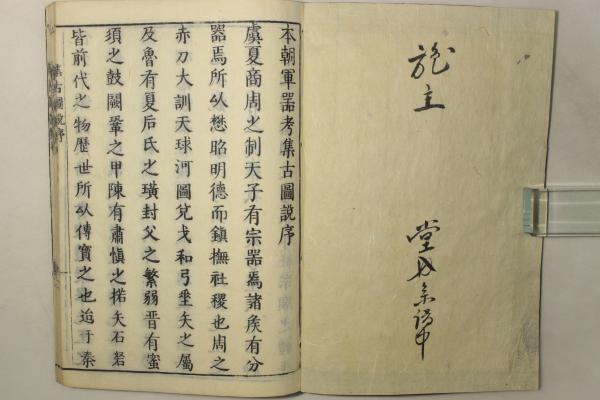 施主
堂
中
本朝軍器考集古圖說序
虞夏商周之制天子有宗器焉諸侯有分
器焉所以懋昭明德而鎮撫社稷也周之
赤刀大訓天球河圖兌戈和弓垂矢之屬
及魯有夏后氏之璜封父之繁弱晉有蜜
須之鼓闕鞏之甲陳有肅愼之楛矢石砮
皆前代之物歷世所以傳寶之也迨于秦
集古圖說序